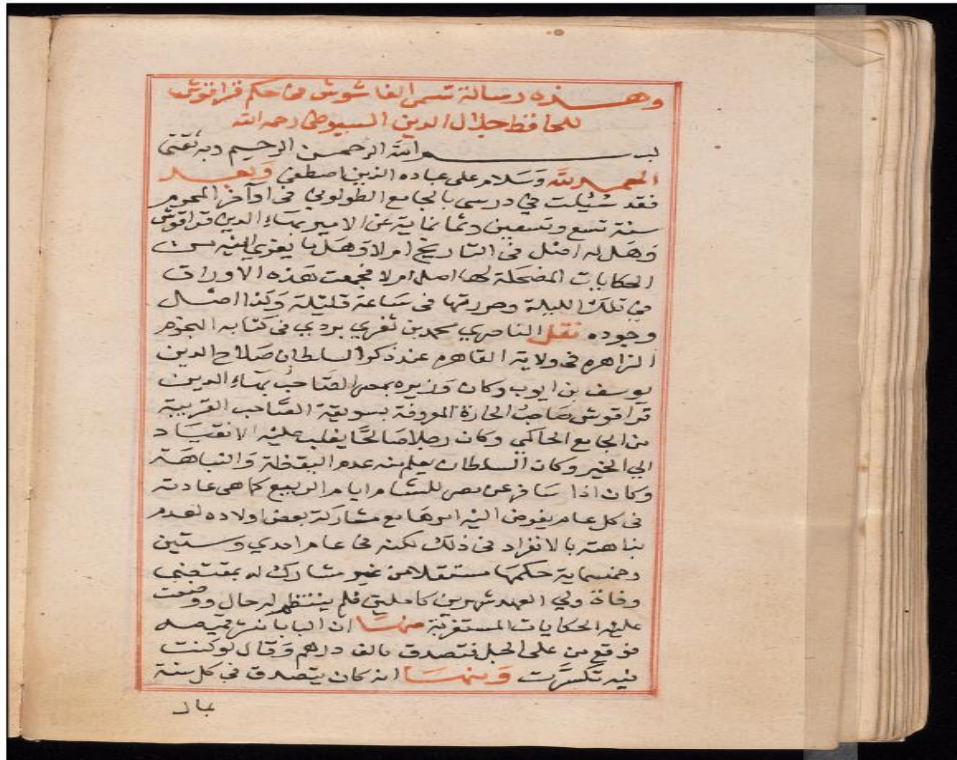 وهذه رسالة تسمى الفاشوش في حكم قراقوش
للحافظ جلال الدين السيوطي رحمه الله
بسم الله الرحمن الرحيم وبه ثقتي
الحمد لله وسلام على عباده الذين اصطفى وبعد
فقد سئلت في درسي بالجامع الطولوني في اوآخر المحرم
سنة تسع وتسعين وثمانماية عن الامير بهاء الدين قراقوش
وهل له اصل في التاريخ ام لا وهل ما يعزي اليه من
الحكايات المضحكة لها اصل ام لا فجمعت هذه الاوراق
في تلك الليلة وحررتها في ساعة قليلة وكذا اصل
وجوده نقل الناصري محمد بن تغري بردي في كتابه النجوم
الزاهره في ولاية القاهره عند ذكر السلطان صلاح الدين
يوسف بن ايوب وكان وزيره بمصر الصاحب بهاء الدين
قراقوش صاحب الحارة المعروفة بسويقة الصاحب القريبة
من الجامع الحاكمي وكان رجلا صالحا يغلب عليه الانقياد
الي الخير وكان السلطان يعلم منه عدم اليقظة والنباهة
وكان اذا سافر عن مصر للشام ايام الربيع كما هي عادته
في كل عام يفوض اليه امرها مع مشاركة بعض اولاده لعدم
نباهته بالانفراد في ذلك لكنه في عام احدي وستين
وخمسماية حكمها مستقلا من غير مشارك له بمقتضى
وفاة ولي العهد شهرين كاملين فلم ينتظم له حال ووضعت
عليه الحكايات المستغربة منها ان البابا نشر قميصه
فوقع من على الحبل فتصدق بالف درهم وقال لو كنت
فيه تكسرت ومنها انه كان يتصدق في كل سنة
بمال